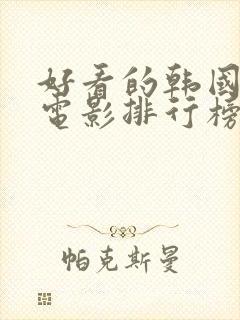 好看的韩國
電影排行榜
帕克斯曼